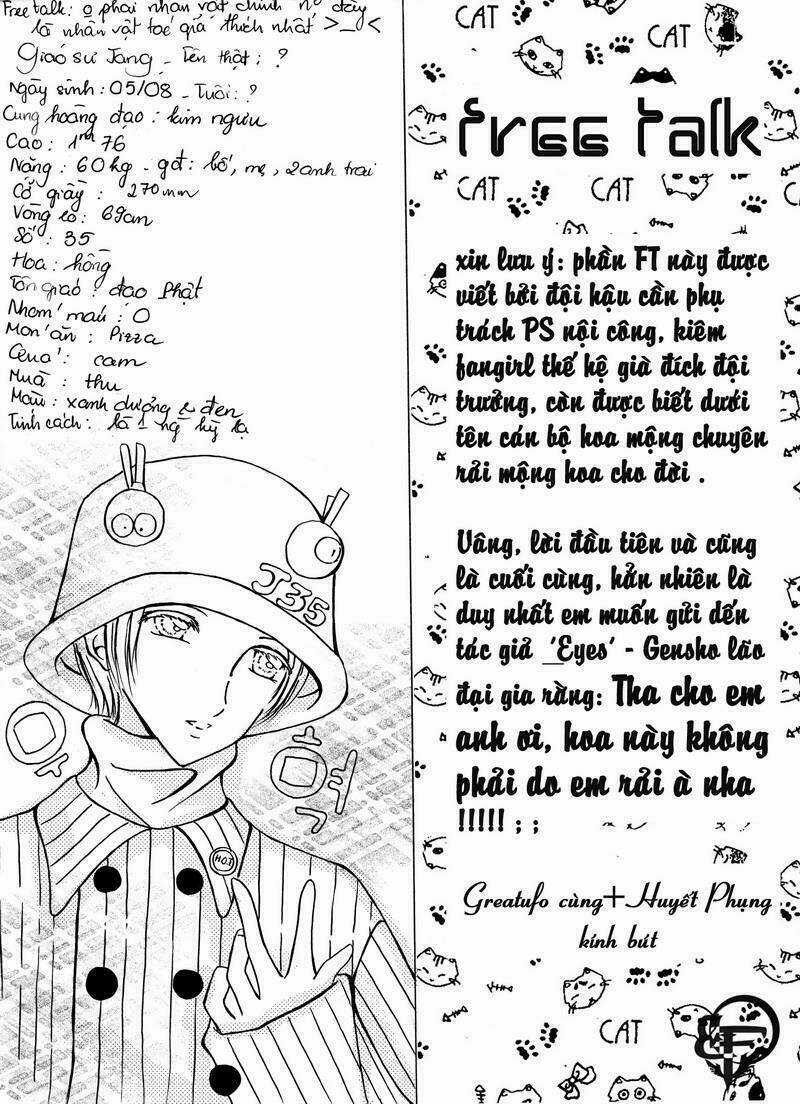 Free talk: o phải nhân vật chính n~ đây
là nhân vật tác giả thích nhất >_<
Giáo sư Jang - Tên thật: ?
Ngày sinh: 05/08 - Tuổi: ?
Cung hoàng đạo: kim ngưu
Cao: 1m76
Nặng: 60kg - gđ: bố, mẹ, 2 anh trai
Cỡ giầy: 270mm
Vòng eo: 69cm
Số: 35
Hoa: hồng
Tôn giáo: đạo Phật
Nhóm máu: O
Món ăn: Pizza
Quả: cam
Mùa: thu
Màu: xanh dương & đen
Tính cách: là 1 ng kỳ lạ
J35
H.O.T
CAT
CAT
free talk
CAT
CAT
xin lưu ý: phần FT này được
viết bởi đội hậu cần phụ
trách PS nội công, kiêm
fangirl thế hệ già đích đội
trưởng, còn được biết dưới
tên cán bộ hoa mộng chuyên
rải mộng hoa cho đời .
Vâng, lời đầu tiên và cũng
là cuối cùng, hẳn nhiên là
duy nhất em muốn gửi đến
tác giả 'Eyes' - Gensho lão
đại gia rằng: Tha cho em
anh ơi, hoa này không
phải do em rải à nha
!!!!! ; ;
Greatufo cùng+Huyết Phụng
kính bút
CAT